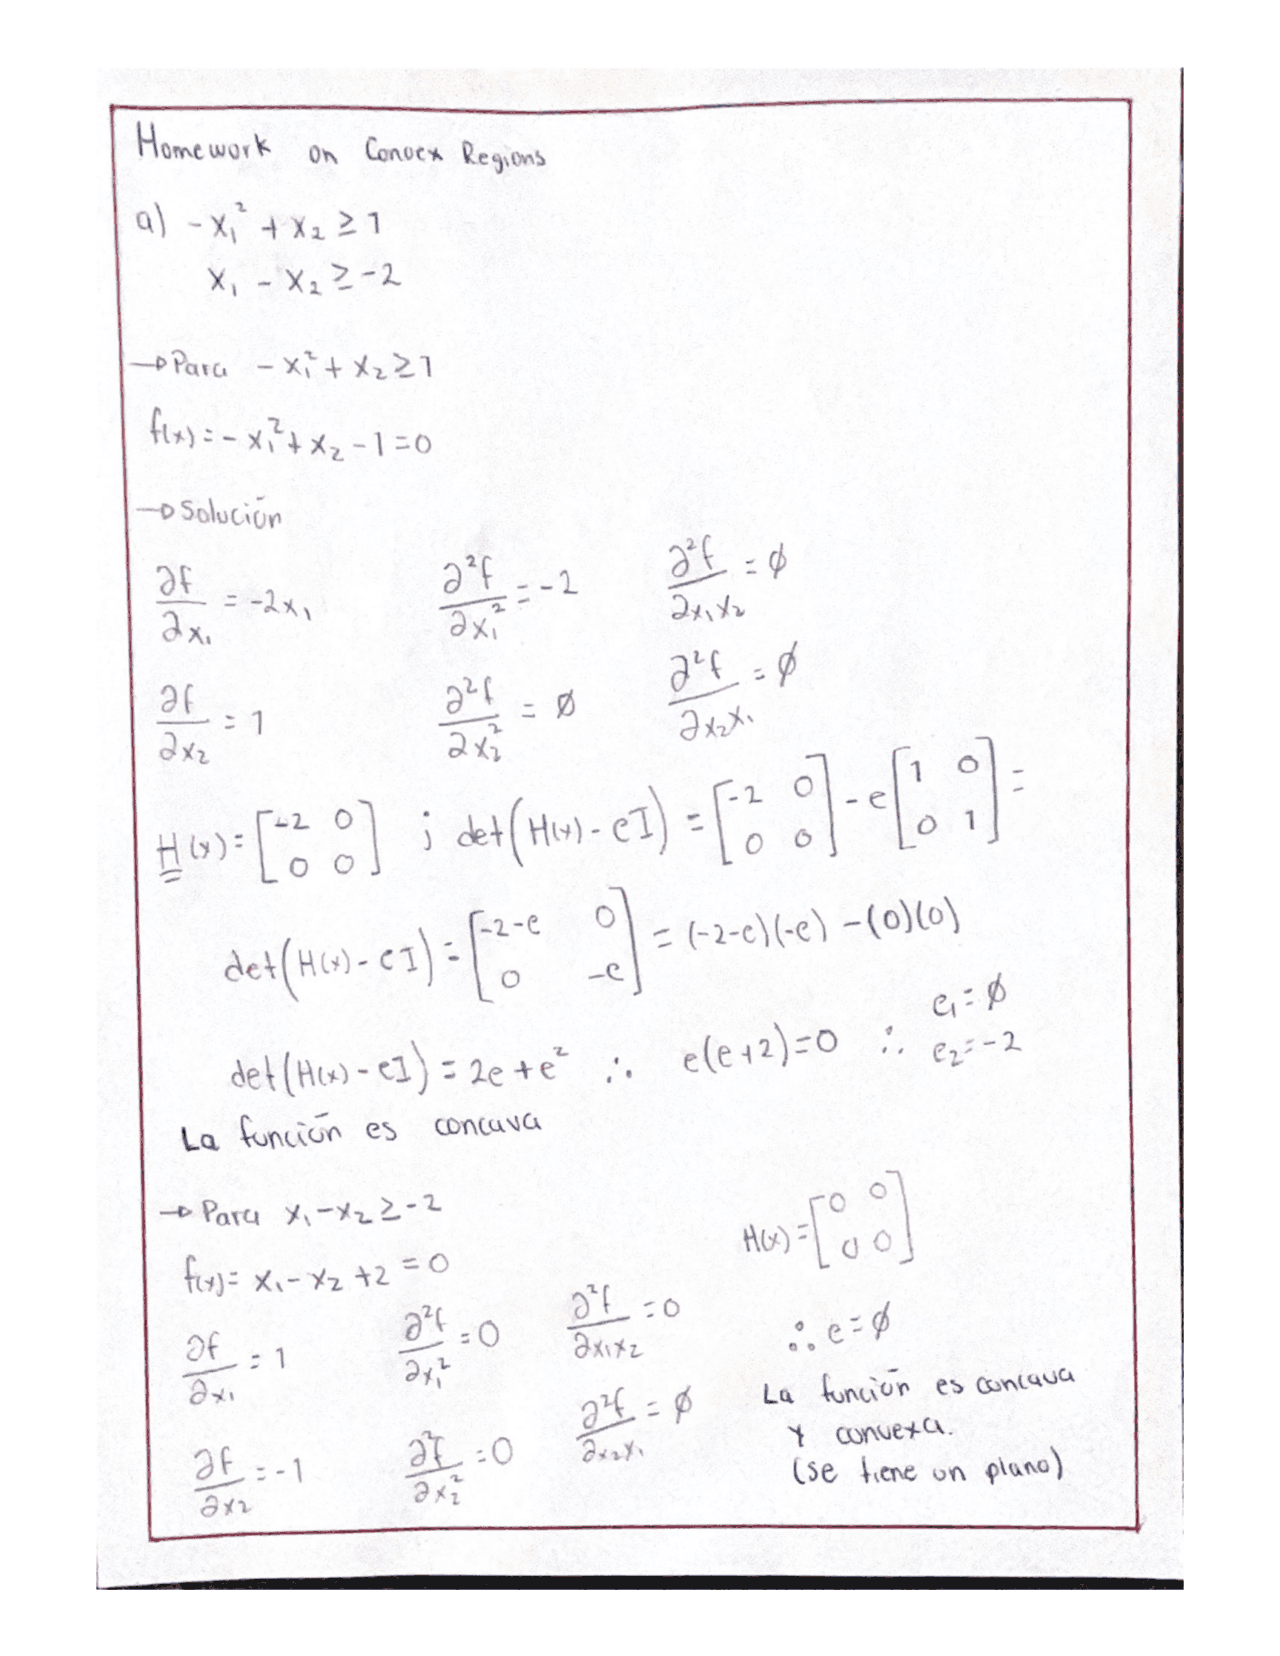 Homework on Convex Regions
a) -x₁² + x₂ ≥ 1
x₁ - x₂ ≥ -2
→ Para -x₁² + x₂ ≥ 1
f(x) = -x₁² + x₂ - 1 = 0
→ Solución
∂f/∂x₁ = -2x₁   ∂²f/∂x₁² = -2   ∂²f/∂x₁x₂ = ∅
∂f/∂x₂ = 1   ∂²f/∂x₂² = ∅   ∂²f/∂x₂x₁ = ∅
H(x) = [-2 0; 0 0] ; det(H(x) - eI) = [-2 0; 0 0] - e[1 0; 0 1] =
det(H(x) - eI) = [-2-e 0; 0 -e] = (-2-e)(-e) - (0)(0)
det(H(x) - eI) = 2e + e² ∴ e(e+2) = 0 ∴ e₁ = ∅ e₂ = -2
La función es concava
→ Para x₁ - x₂ ≥ -2
f(x) = x₁ - x₂ + 2 = 0
∂f/∂x₁ = 1   ∂²f/∂x₁² = 0   ∂²f/∂x₁x₂ = 0
∂f/∂x₂ = -1   ∂²f/∂x₂² = 0   ∂²f/∂x₂x₁ = ∅
H(x) = [0 0; 0 0]
∴ e = ∅
La función es concava
y convexa.
(se tiene un plano)